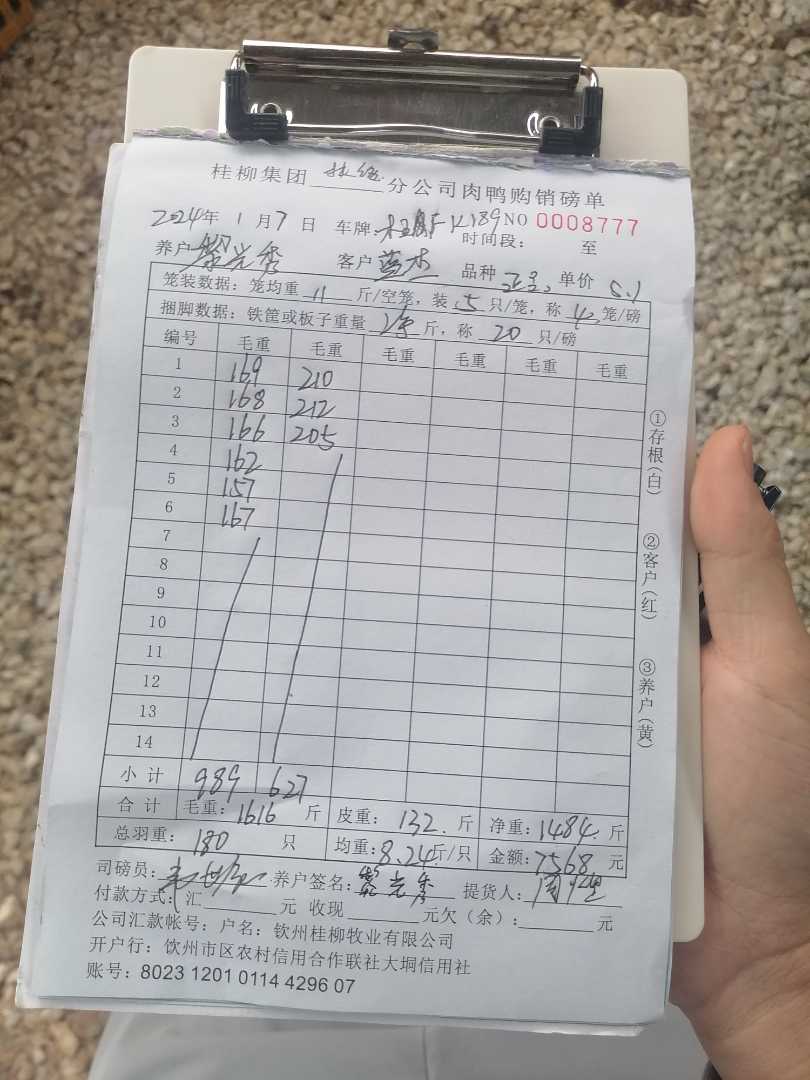 桂柳集团 分公司肉鸭购销磅单
2024年 1 月 7 日 车牌: 189 NO 0008777
时间段: 至
养户 黎光秀 客户 蓝 品种 单价 5.1
笼装数据: 笼均重 11 斤/空笼, 装 5 只/笼, 称 4 笼/磅
捆脚数据: 铁筐或板子重量 斤, 称 20 只/磅
编号 毛重 毛重 毛重 毛重 毛重 毛重
1 169 210
2 168 212
3 166 205
4 162
5 157
6 167
7
8
9
10
11
12
13
14
小计 989 627
合计 毛重: 1616 斤 皮重: 132. 斤 净重: 1484. 斤
总羽重: 180 只 均重: 8.24 斤/只 金额: 7568 元
司磅员: 养户签名: 黎光秀 提货人:
付款方式: 汇 元 收现 元欠(余): 元
公司汇款帐号: 户名: 钦州桂柳牧业有限公司
开户行: 钦州市区农村信用合作联社大垌信用社
账号: 8023 1201 0114 4296 07
①存根(白)
②客户(红)
③养户(黄)